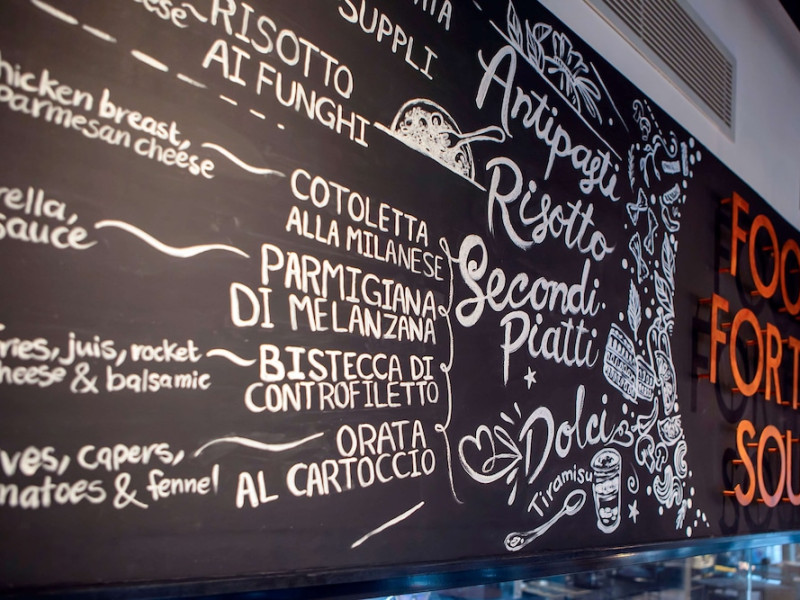 SUPPLI
RISOTTO
AI FUNGHI
chicken breast,
parmesan cheese
COTOLETTA
ALLA MILANESE
sauce
PARMIGIANA
DI MELANZANA
juis, rocket
& balsamic
BISTECCA DI
CONTROFILETTO
capers,
& fennel
ORATA
AL CARTOCCIO
Antipasti
Risotto
Secondi
Piatti
Dolci
Tiramisu
FOO
FORT
SOU